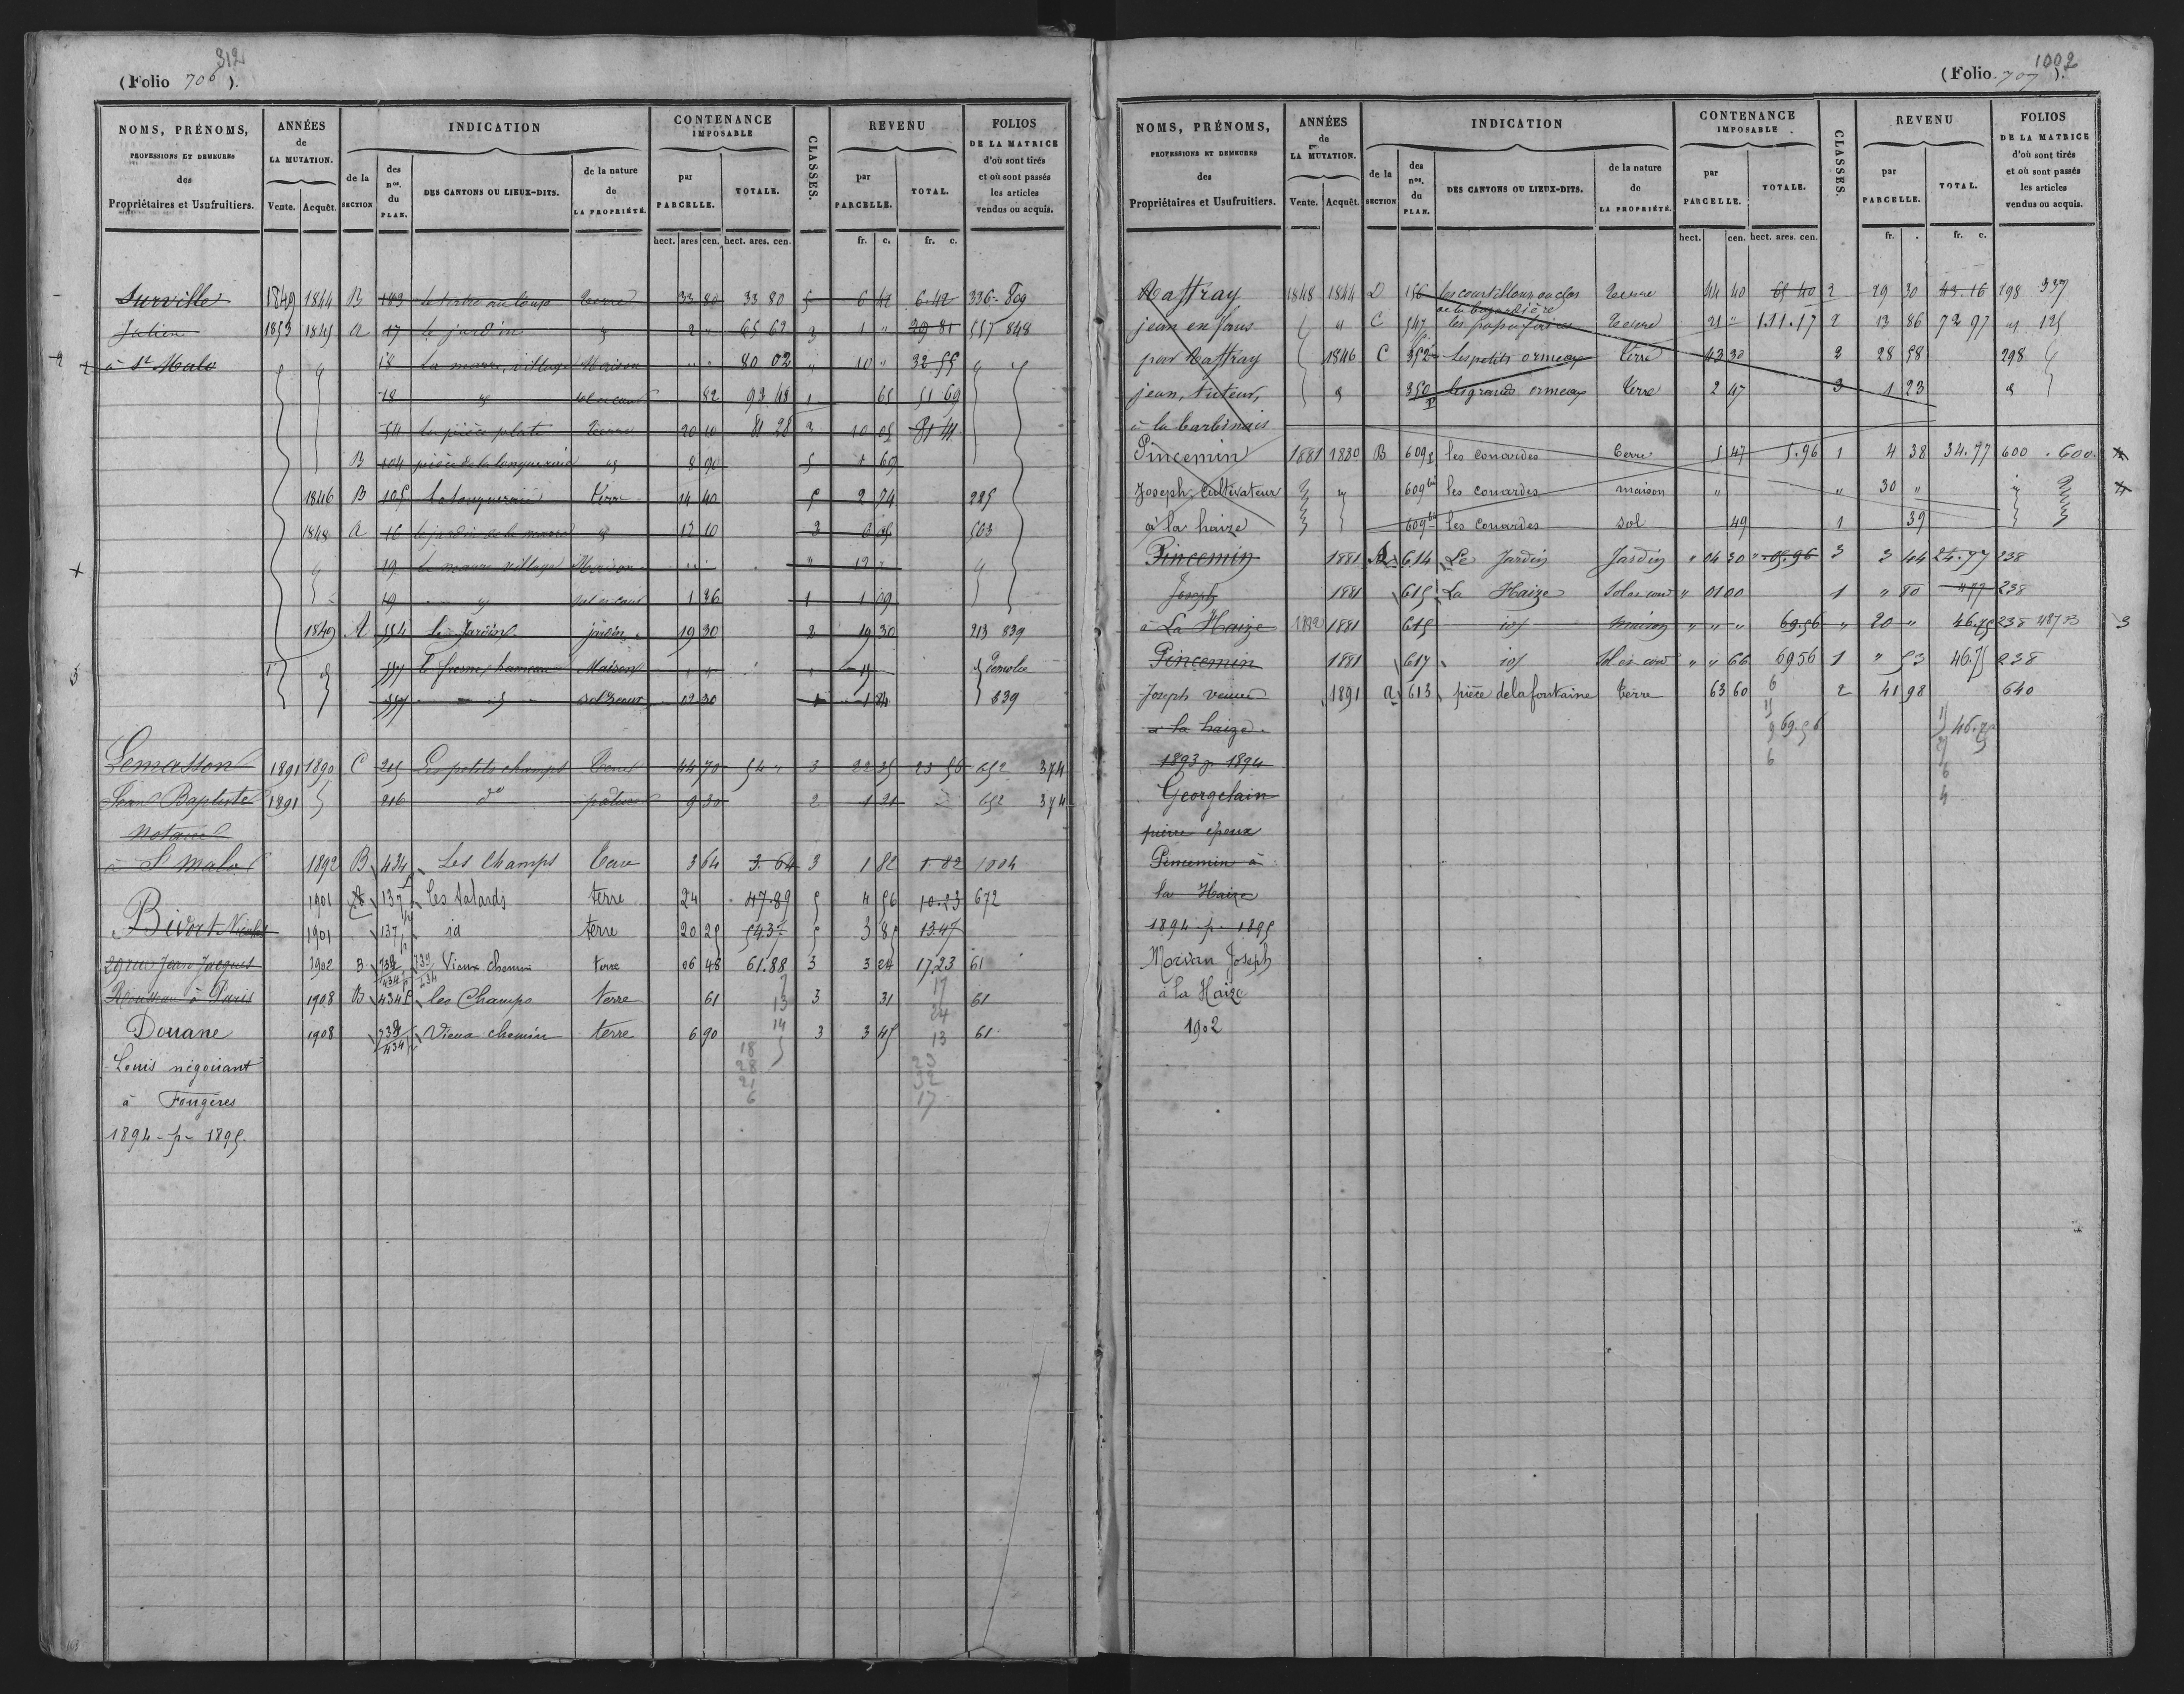 312
(Folio 706).
NOMS, PRÉNOMS,
PROFESSIONS ET DEMEURES
des
Propriétaires et Usufruitiers.
ANNÉES
de
LA MUTATION.
Vente. Acquêt.
INDICATION
de la
SECTION
des
nos.
du
PLAN.
DES CANTONS OU LIEUX-DITS.
de la nature
de
LA PROPRIÉTÉ.
CONTENANCE
IMPOSABLE
par
PARCELLE.
TOTALE.
CLASSES.
REVENU
par
PARCELLE.
TOTAL.
FOLIOS
DE LA MATRICE
d'où sont tirés
et où sont passés
les articles
vendus ou acquis.
hect. ares cen. hect. ares. cen. fr. c. fr. c.
Surville 1849 1844 B 189 Le tertre au loup terre 33 80 33 80 5 6 42 6.42 336 809
Julien 1853 1845 a 17 le jardin 2 " 65 62 3 1 " 29 81 557 848
à St Malo 18 La mare, village Maison " " 80 02 " 10 " 32 55
18 82 93 48 1 65 51 69
54 La pièce plate terre 20 10 81 28 2 10 05 81 41
B 104 pièce de la longueraie 8 90 5 1 69
1846 B 105 La longueraie terre 14 40 5 2 74 225
1848 a 16 le jardin de la mare 12 10 2 6 05 503
19 la mare village Maison " 12 "
19 1 36 1 1 09
1849 A 554 Le Jardin jardin 19 30 2 19 30 213 839
557 le fresne, hameau Maison
557 02 30 1 1 84 839
Lemasson 1891 1890 C 215 Les petits champs Terre 44 70 54 " 3 22 35 23 56 652 374
Jean Baptiste 1891 216 do pature 9 30 2 1 21 652 374
Notaire
à St Malo 1892 B 434 Les Champs terre 3 64 3.64 3 1 82 1.82 1004
1901 A 137 Les Salards terre 24 47.89 5 4 56 10.23 672
Bivort Nicolas 1901 137 id terre 20 25 54.37 5 3 85 13.47
29 rue Jean Jacques 1902 B 739 Vieux chemin terre 06 48 61.88 3 3 24 17.23 61
Rousseau à Paris 1908 B 434 les Champs terre 61 3 31 61
Douane 1908 739/434 Vieux chemin terre 6 90 3 3 45 61
Louis négociant
à Fougères
1894 p 1895.
1002
(Folio 707).
NOMS, PRÉNOMS,
PROFESSIONS ET DEMEURES
des
Propriétaires et Usufruitiers.
ANNÉES
de
LA MUTATION.
Vente. Acquêt.
INDICATION
de la
SECTION
des
nos.
du
PLAN.
DES CANTONS OU LIEUX-DITS.
de la nature
de
LA PROPRIÉTÉ.
CONTENANCE
IMPOSABLE
par
PARCELLE.
TOTALE.
CLASSES.
REVENU
par
PARCELLE.
TOTAL.
FOLIOS
DE LA MATRICE
d'où sont tirés
et où sont passés
les articles
vendus ou acquis.
hect. cen. hect. ares. cen. fr. . fr. c.
Raffray 1848 1844 D 156 les courtillons ou clos terre 44 40 65 40 2 29 30 43.16 198 337
jean enfans " C 547 terre 21 " 1.11.17 2 13 86 72 97 " 125
par Raffray 1846 C 352 Les petits ormeaux terre 43 30 2 28 58 298
jean, tuteur, 350 les grands ormeaux terre 2 47 3 1 23
à la barbinais
Pincemin 1881 1880 B 609 les conardes terre 5 47 5.96 1 4 38 34.77 600 600
Joseph, Cultivateur 609 bis les conardes maison " " 30 "
à la haize 609 bis les conardes sol 49 1 39
Pincemin 1881 A 614 Le Jardin Jardin " 04 30 " 05.96 3 3 44 24.77 238
Joseph 1881 615 La Haize Sol et cour " 01 00 1 " 80 238
à La Haize 1892 1881 615 id maison " " " 69.56 " 20 " 46.75 238 487
Pincemin 1881 617 id Sol et cour " " 66 69 56 1 " 53 46.75 238
Joseph veuve 1891 a 613 pièce de la fontaine terre 63 60 2 41 98 640
à la haize. 69.56 46.75
1893 p 1894
Georgelain
pierre époux
Pincemin à
la Haize
1894 p 1895
Morvan Joseph
à la Haize
1902